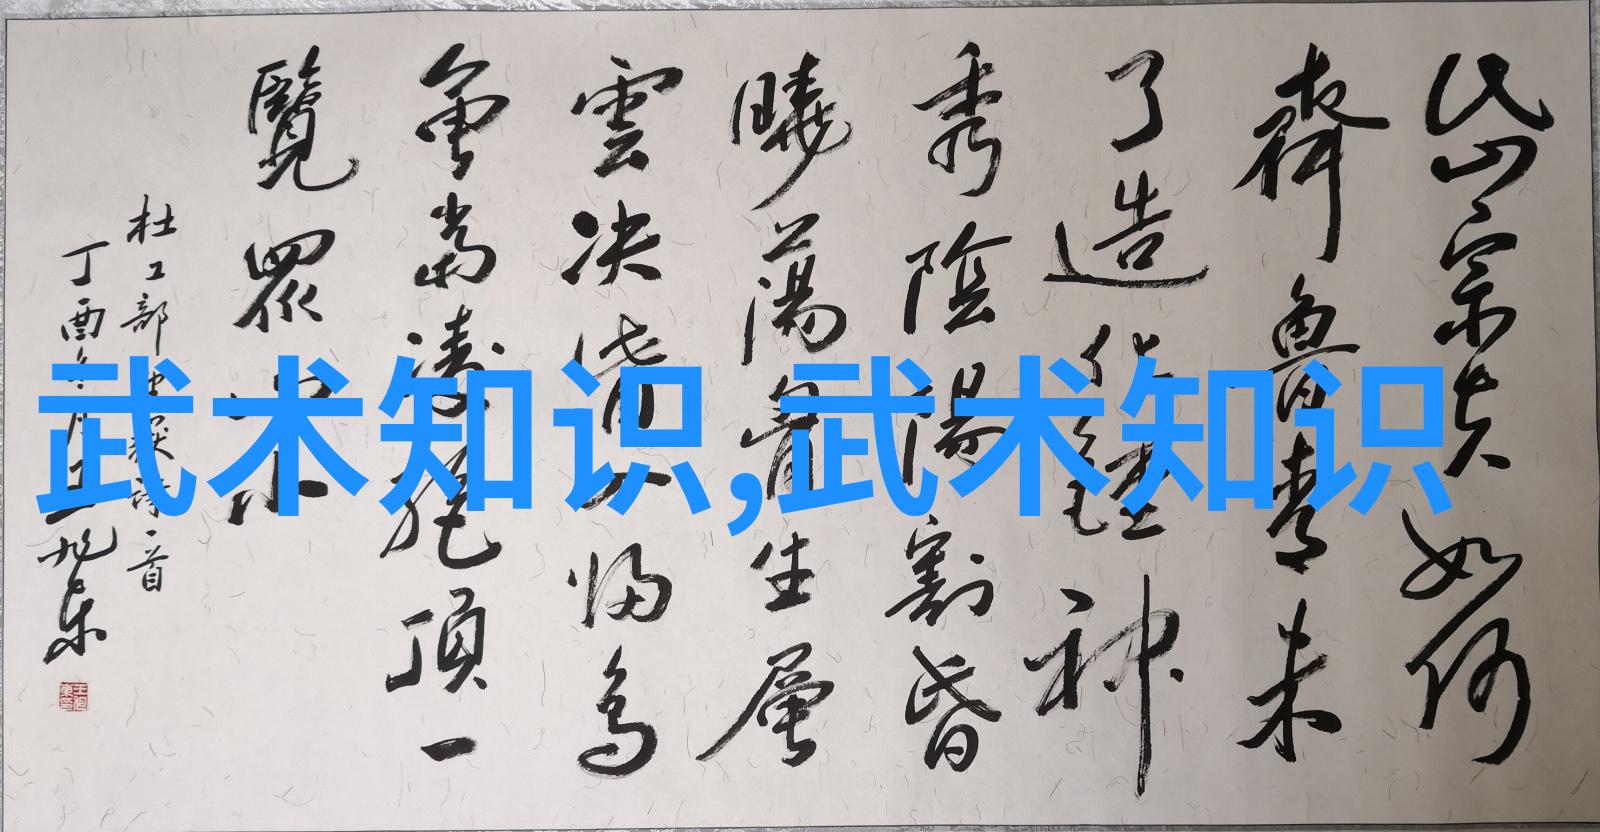 岱宗夫如何
齊魯青未
了造化鍾神
秀陰陽割昏
曉蕩胸生層
雲决眥入歸鳥
會當凌絶頂一
覽眾山小
杜工部望嶽詩一首
丁酉冬月王旭东
武术知识,武术知识